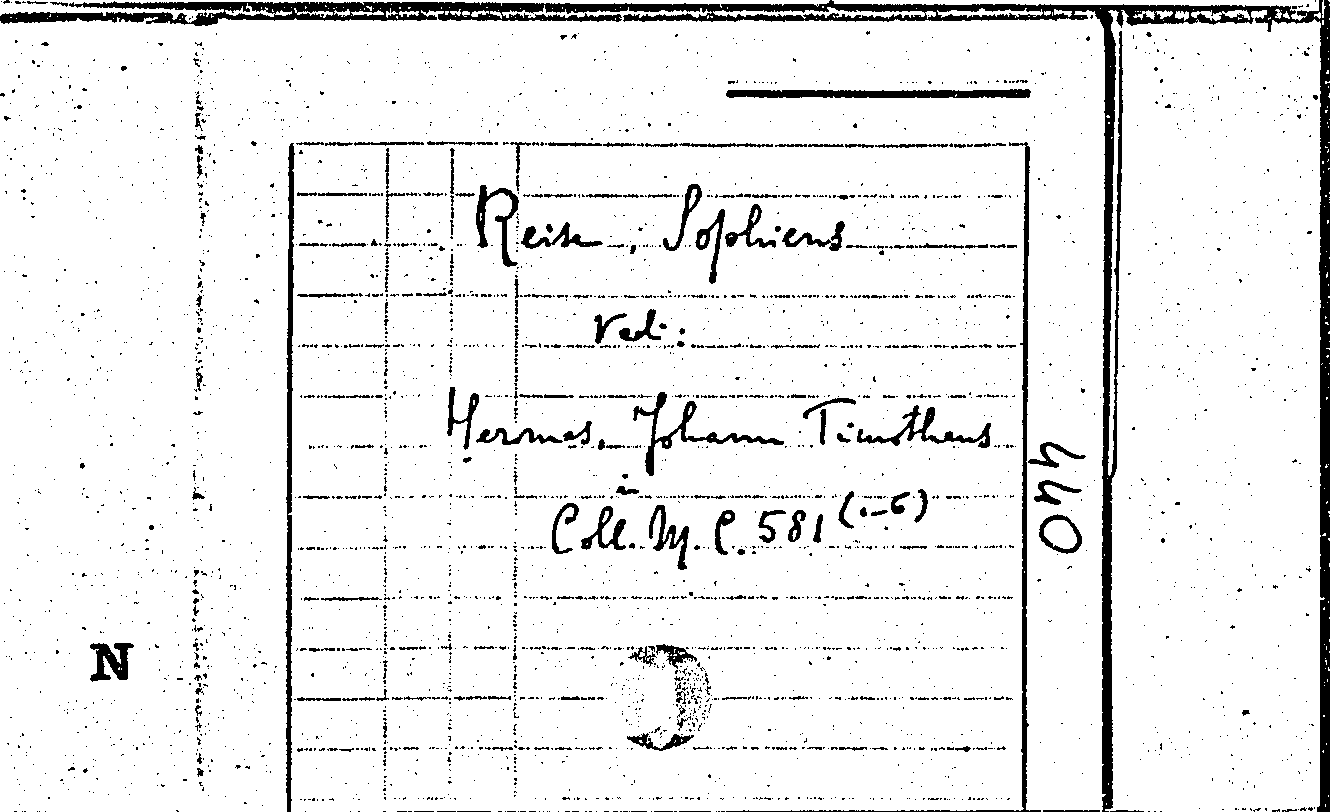 Reise, Sophiens
Vedi:
Hermes, Johann Timotheus
in
Coll. M. C. 581 (1-6)
440
N